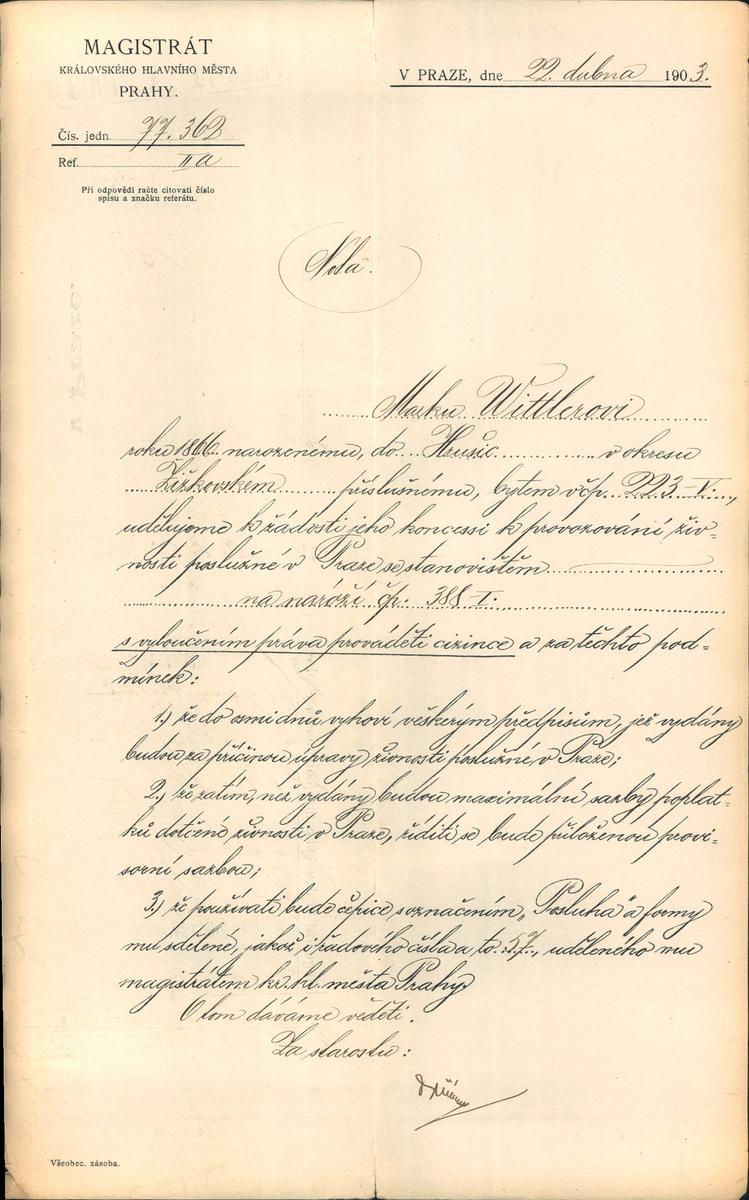 MAGISTRÁT
KRÁLOVSKÉHO HLAVNÍHO MĚSTA
PRAHY.
V PRAZE, dne 22. dubna 1903.
Čís. jedn. 77.362
Ref. IIa
Při odpovědi račte citovati číslo
spisu a značku referátu.
Nota.
Marku Wittlerovi
roku 1866 narozenému, do Hrusic v okresu
Žižkovském příslušnému, bytem v čp. 223-V.,
udělujeme k žádosti jeho koncessi k provozování živ-
nosti poslužné v Praze se stanovištěm
na nároží čp. 388-I.
s vyloučením práva prováděti cizince a za těchto pod-
mínek:
1.) že do osmi dnů vyhoví veškerým předpisům, jež vydány
budou za příčinou úpravy živnosti poslužné v Praze;
2.) že zatím, než vydány budou maximální sazby poplat-
ků dotčené živnosti v Praze, říditi se bude přiloženou provi-
sorní sazbou;
3.) že používati bude čepice s označením „Posluha" a formy
mu sdělené, jakož i řadového čísla a to 57, uděleného mu
magistrátem kr. hl. města Prahy.
O tom dáváme věděti.
Za starostu:
Všeobec. zásoba.